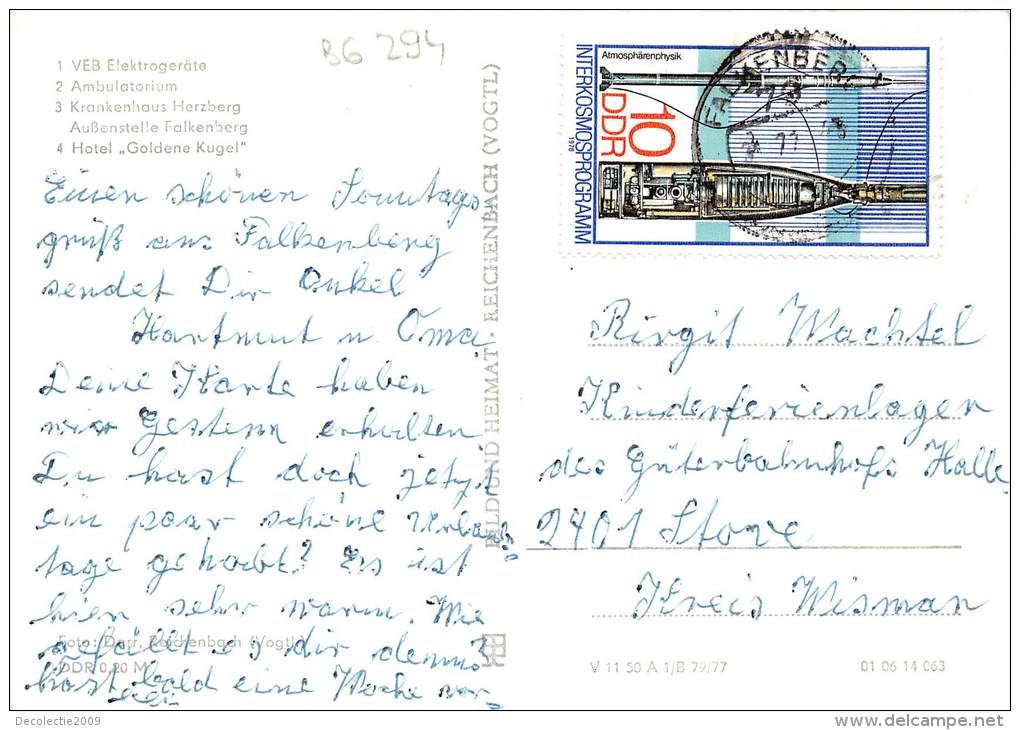 BG 294
1 VEB Elektrogeräte
2 Ambulatorium
3 Krankenhaus Herzberg
Außenstelle Falkenberg
4 Hotel „Goldene Kugel"
Einen schönen Sonntags
grüß aus Falkenberg
sendet Dir Onkel
Hartmut u. Oma
Deine Karte haben
wir Gestern erhalten
Du hast doch jetzt
ein paar schöne Urlaubs
tage gehabt? Es ist
hier sehr warm. Wie
gefällt es dir denn?
hast bald eine Woche
Foto: Darr, Reichenbach (Vogtl.)
DDR 0,20 M
BILD UND HEIMAT · REICHENBACH (VOGTL)
Atmosphärenphysik
10
DDR
1978
INTERKOSMOSPROGRAMM
FALKENBERG
Birgit Wachtel
Kinderferienlager
des Güterbahnhofs Halle
2401 Stove
Kreis Wismar
V 11 50 A 1/B 79/77
01 06 14 063
Decolectie2009
delcampe.net